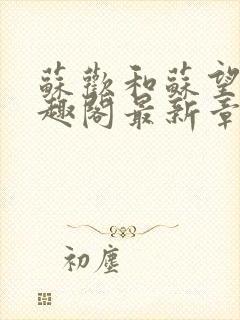 蘇歡和蘇望
趣閣最新章
初塵